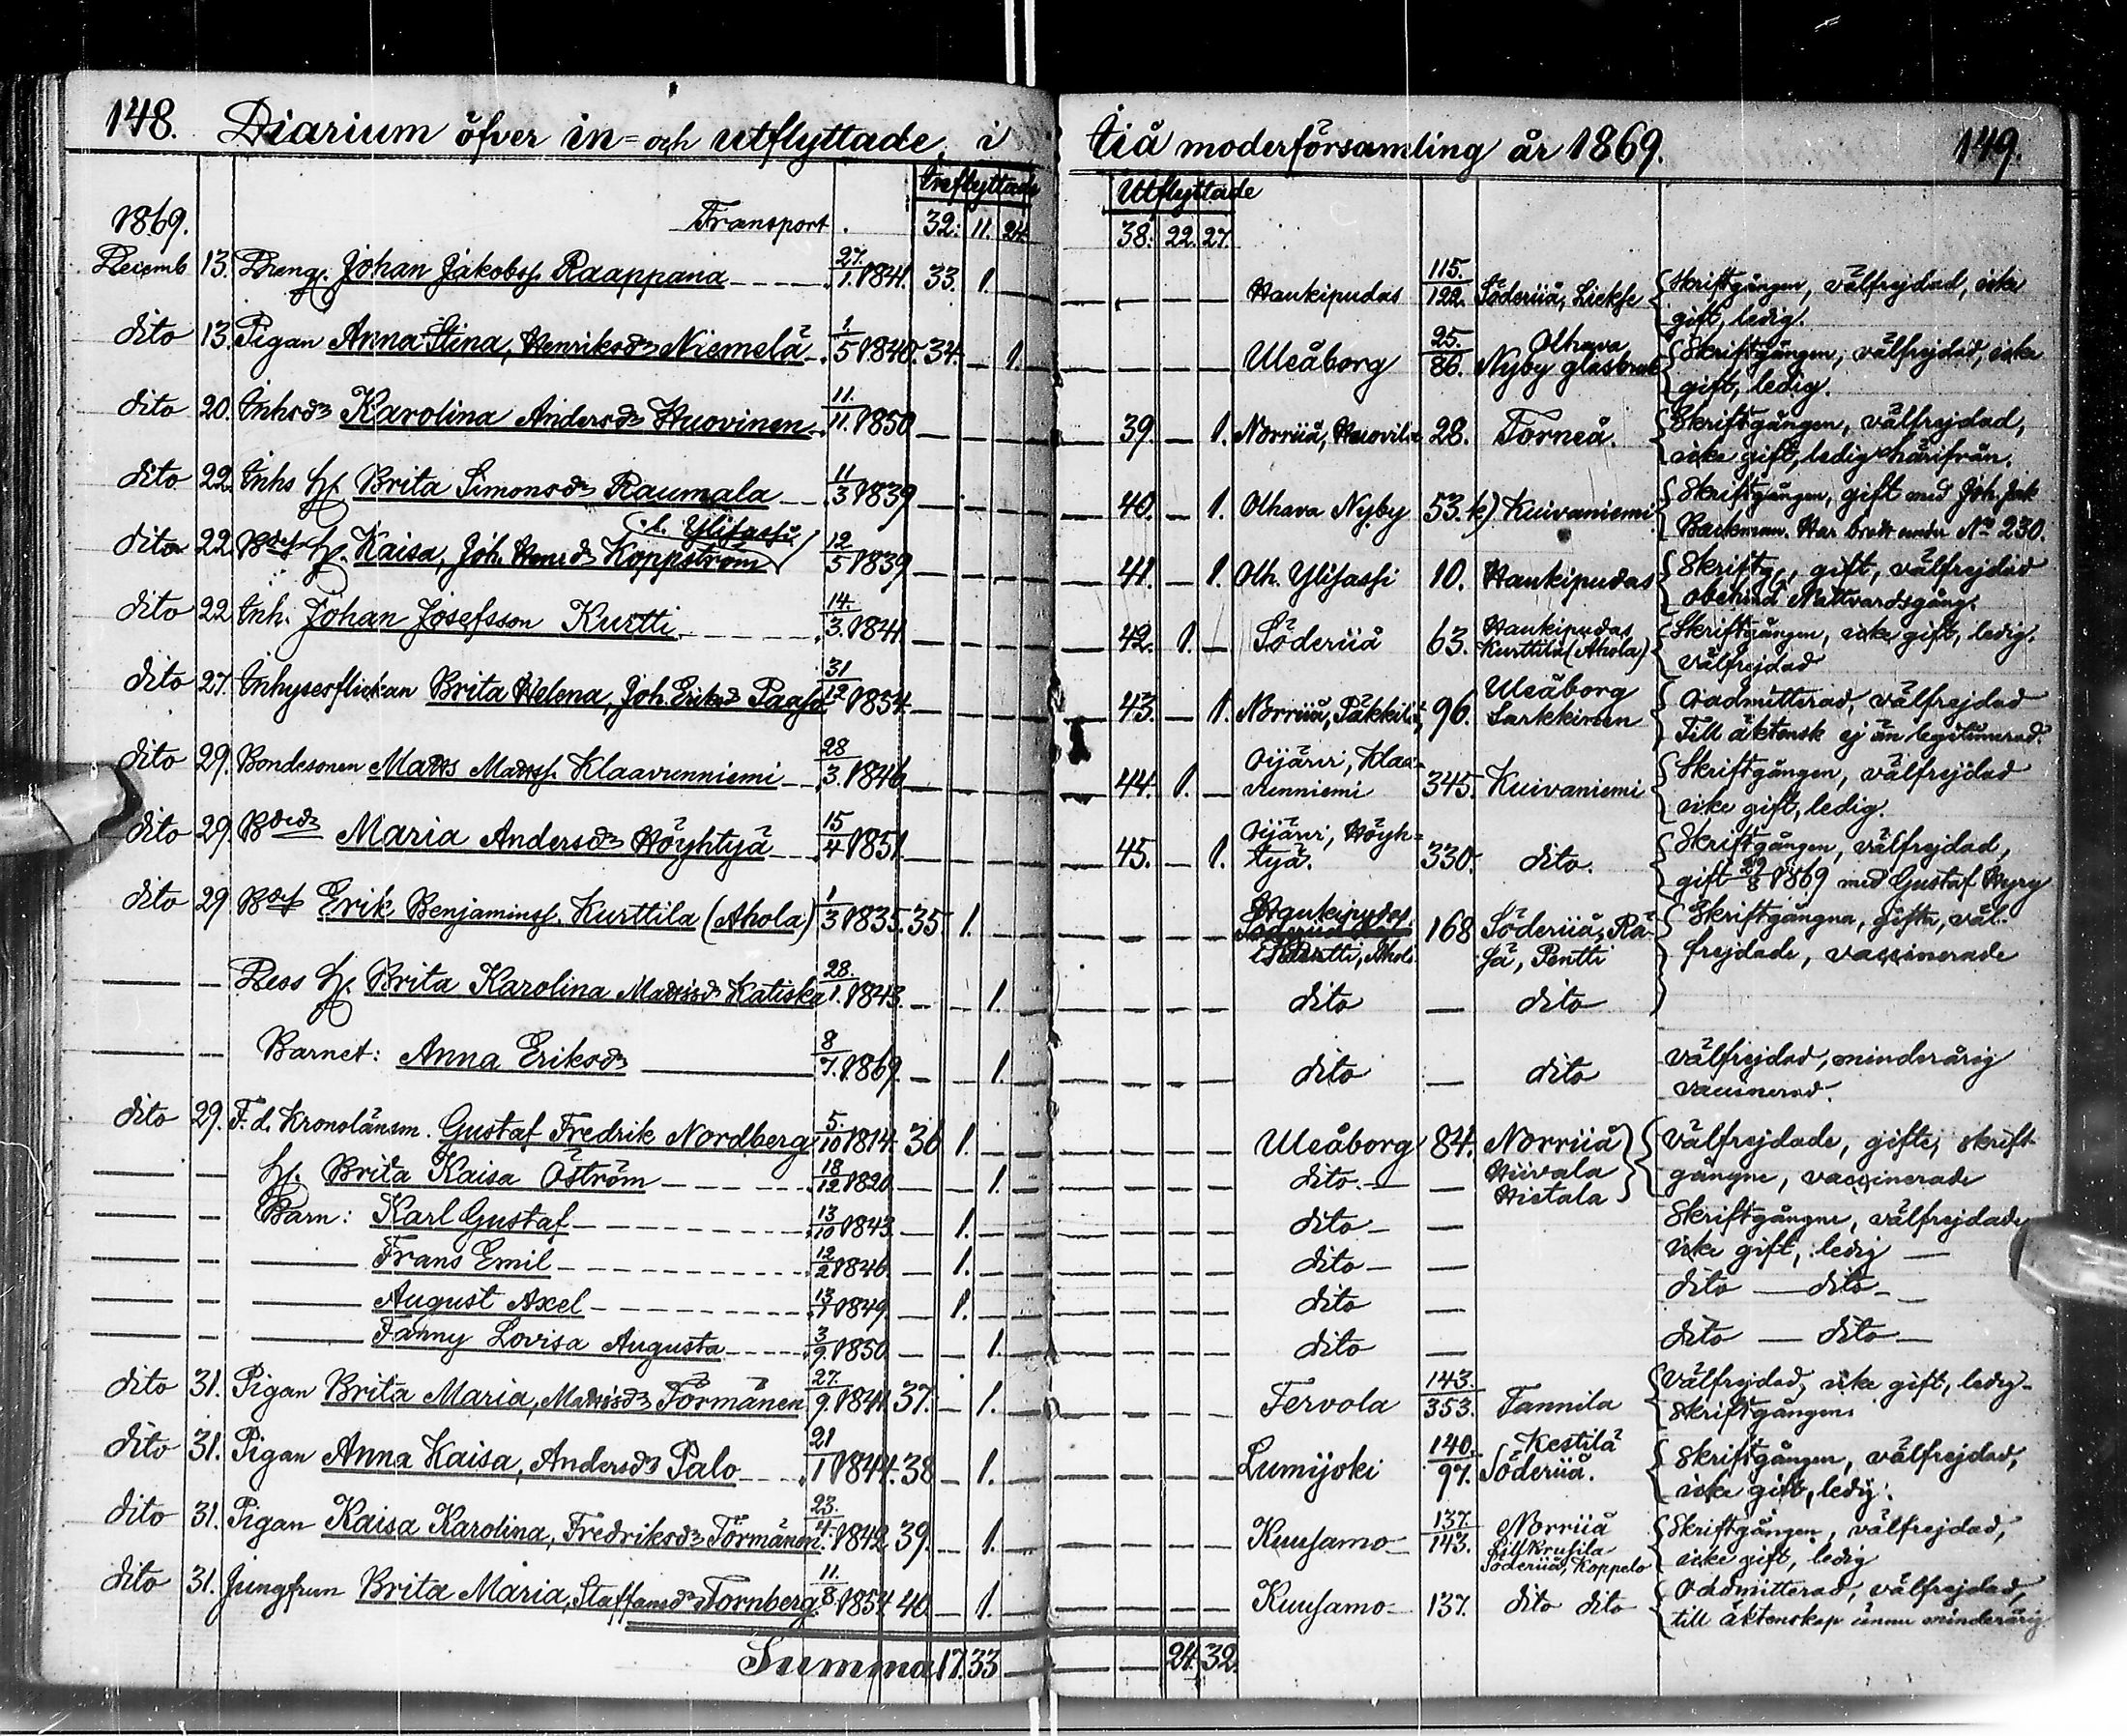 148. Diarium öfver in= och utflyttade i Iiå moderförsamling år 1869. 149.
Inflyttade Utflyttade
1869. Transport. 32. 11. 24. 38. 22. 27.
Decemb 13. Dreng. Johan Jakobss. Raappana 27./1. 1841. 33. 1. Haukipudas 115./122. Söderiiå, Liekse Skriftgången, välfrejdad, icke
gift, ledig.
dito 13. Pigan Anna Stina, Henriksdr Niemelä 1./5 1840. 34. 1. Uleåborg 25./86. Olhava Nyby glasbruk Skriftgången, välfrejdad, icke
gift, ledig.
dito 20. Inhsdr Karolina Andersdr Huovinen 11./11. 1850 39. 1. Norriiå, Huovila 28. Torneå. Skriftgången, välfrejdad,
icke gift, ledig härifrån.
dito 22. Inhs h. Brita Simonsdr Raumala 11/3 1839 40. 1. Olhava Nyby 53. k) Kuivaniemi Skriftgången, gift med Joh. Jak
Backman. Har brott under No 230.
dito 22. h. Kaisa, Joh. Hansdr Koppström Ylitassi 12/5 1839 41. 1. Olh. Ylitassi 10. Haukipudas Skriftg., gift, välfrejdad
obehind Nattvardsgång.
dito 22 Inh. Johan Josefsson Kurtti 14./3. 1841. 42. 1. Söderiiå 63. Haukipudas
Kurttila (Ahola) Skriftgången, icke gift, ledig.
välfrejdad
dito 27. Inhysesflickan Brita Helena, Joh. Eriksdr Paaso 31/12 1854. 43. 1. Norriiå, Päkkilä, 96. Uleåborg
Sarkkinen Oadmitterad, välfrejdad
Till äktensk ej än legitimerad.
dito 29. Bondesonen Matts Mattss. Klaavunniemi 28/3. 1846 44. 1. Oijärvi, Klaa=
vunniemi 345. Kuivaniemi Skriftgången, välfrejdad
icke gift, ledig.
dito 29. Maria Andersdr Höyhtyä 15/4 1851. 45. 1. Oijärvi, Höyh=
tyä. 330. dito. Skriftgången, välfrejdad,
gift 29/8 1869 med Gustaf Hyry
dito 29 Erik Benjamins. Kurttila (Ahola) 1/3 1835. 35. 1. Haukipudas 168 Söderiiå, Rä-
sä, Pentti Skriftgångna, gifta, väl-
frejdade, vaccinerade
Dess h. Brita Karolina Mattsdr Katiska 28./1. 1843. 1. dito dito
Barnet: Anna Eriksdr 8/7. 1869. 1. dito dito välfrejdad, minderårig
vaccinerad.
dito 29. F. d. Kronolänsm. Gustaf Fredrik Nordberg 5./10 1814. 36 1. Uleåborg 84. Norriiå
Hiivala
Hietala välfrejdade, gifte, skrift-
gångne, vaccinerade
h. Brita Kaisa Öström 18/12 1820. 1. dito.
Barn: Karl Gustaf 13/10 1843. 1. dito Skriftgångne, välfrejdade
icke gift, ledig
Frans Emil 12/2 1846. 1. dito
August Axel 13/1 1849. 1. dito dito dito
Fanny Lovisa Augusta 3/9. 1850 1. dito dito dito
dito 31. Pigan Brita Maria, Mattsdr Törmänen 27./9. 1841. 37. 1. Tervola 143./353. Tannila välfrejdad, icke gift, ledig
skriftgången.
dito 31. Pigan Anna Kaisa, Andersdr Palo 21/1 1844. 38 1. Lumijoki 140./97. Kestilä
Söderiiå. Skriftgången, välfrejdad,
icke gift, ledig.
dito 31. Pigan Kaisa Karolina, Fredriksdr Törmänen 23./4. 1842 39. 1. Kuusamo 137./143. Norriiå
Lillkrusila
Söderiiå, Koppelo Skriftgången, välfrejdad,
icke gift, ledig
dito 31. Jungfrun Brita Maria, Staffansdr Tornberg. 11./8. 1854 40. 1. Kuusamo 137. dito dito Oadmitterad, välfrejdad,
till äktenskap ännu minderårig
Summa 17. 33 24. 32.